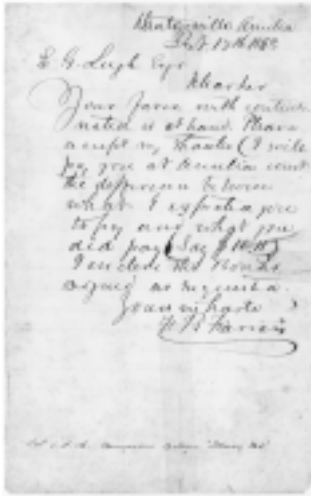 Sept 17th 1863
E. G. Leigh Esqr
Dear Sir
Your favor with contents
noted is at hand. Please
accept my thanks (I will
pay you at Amelia court
the difference between
what I expected you
to pay and what you
did pay Say $10.
I enclose the Bonds
signed as requested.
Yours in haste